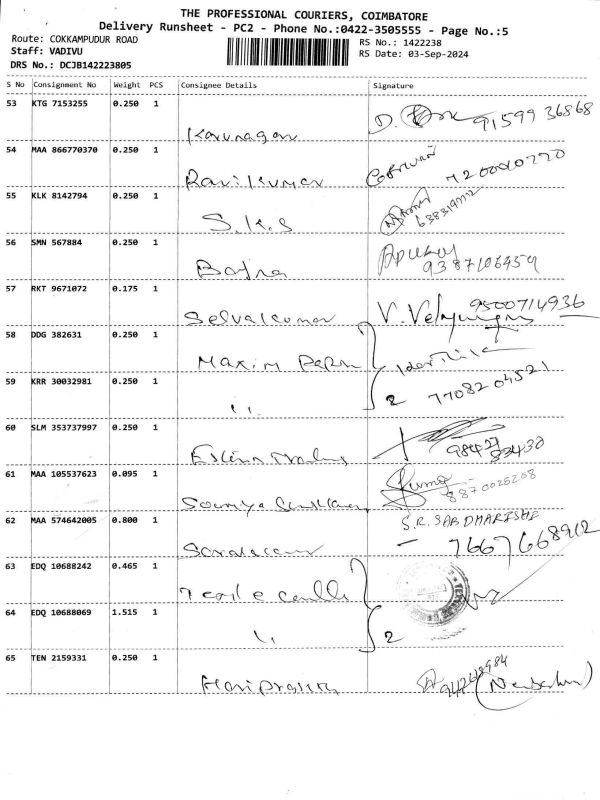 THE PROFESSIONAL COURIERS, COIMBATORE
Delivery Runsheet - PC2 - Phone No.:0422-3505555 - Page No.:5
Route: COKKAMPUDUR ROAD
RS No.: 1422238
Staff: VADIVU
RS Date: 03-Sep-2024
DRS No.: DCJB142223805
S No Consignment No Weight PCS Consignee Details Signature
53 KTG 7153255 0.250 1
Karunagan 91599 36868
54 MAA 866770370 0.250 1
Ravikumar
55 KLK 8142794 0.250 1
S.K.S
56 SMN 567884 0.250 1
9387106959
57 RKT 9671072 0.175 1
Selvakumar 9500714936
58 DDG 382631 0.250 1
Maxim
59 KRR 30032981 0.250 1
,, 2 7708204521
60 SLM 353737997 0.250 1
61 MAA 105537623 0.095 1
Soumya Suma 8870025208
62 MAA 574642005 0.800 1
S.R. SABDHARISHE
7667668912
63 EDQ 10688242 0.465 1
64 EDQ 10688069 1.515 1
,, 2
65 TEN 2159331 0.250 1